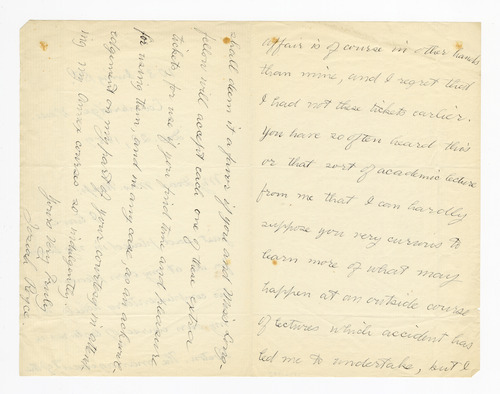 affair is of course in other hands
than mine, and I regret that
I had not these tickets earlier.
You have so often heard this
or that sort of academic lecture
from me that I can hardly
suppose you very curious to
learn more of what may
happen at an outside course
of lectures which accident has
led me to undertake, but I
shall deem it a favor if you and Miss Long-
fellow will accept each one of these extra
tickets, for use if you find time and pleasure
for using them, and in any case, as an acknowl-
edgement on my part of your courtesy in attend-
ing my Cours courses so indulgently.
Yours Very Truly
Josiah Royce.